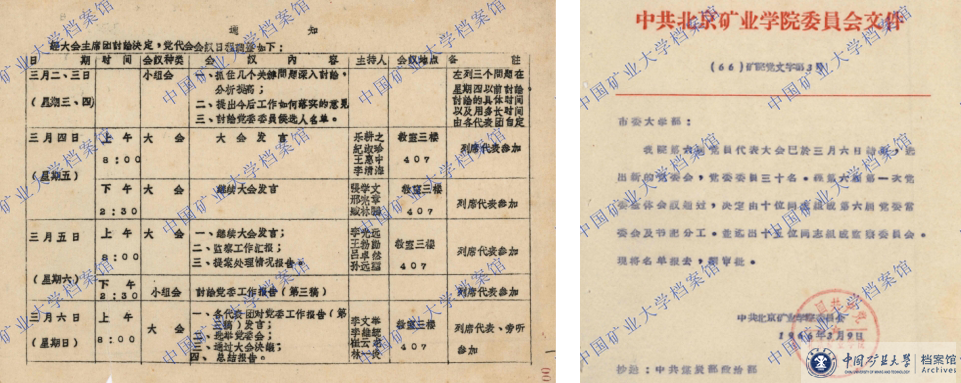 通 知
经大会主席团討論决定，党代会会议日程調整如下：
日 期 时 间 会议种类 会 议 内 容 主持人 会议地点 备 註
三月二、三日
(星期三、四)
小组会
一、抓住几个关鍵問題深入討論，
分析提高；
二、提出今后工作如何落实的意见
三、討論党委委員候选人名单。
左列三个問題在
星期四以前討論，
討論的具体时间
以及用多长时间
由各代表团自定
三月四日
(星期五)
上 午
8：00
大 会
大 会 发 言
乐耕之
紀淑珍
王惠中
李清海
教室三楼
407
列席代表参加
下 午
2：30
大 会
継续大会发言
張学文
邢兆章
教室三楼
407
列席代表参加
三月五日
(星期六)
上 午
8：00
大 会
一、継续大会发言；
二、监察工作汇报；
三、提案处理情况报告。
李光远
王勃勋
吕卓然
孙远
教室三楼
407
列席代表参加
下 午
2：30
小组会
討論党委工作报告（第三稿）
列席代表参加
三月六日
(星期日)
上 午
8：00
大 会
一、各代表团对党委工作报告（第
三稿）发言；
二、选举党委会；
三、通过大会决議；
四、总结报告。
李文华
教室三楼
407
列席代表、旁听
参加
中共北京矿业学院委員会文件
(66)矿院党文字第3号
市委大学部：
我院第六届党員代表大会已於三月六日结束，选
出新的党委会，党委委員三十名。经第六届第一次党
委全体会议通过，决定由十位同志組成第六届党委常
委会及书記分工。並选出十五位同志組成监察委員会。
现将名单报去，請审批。
中共北京矿业学院委員会
1966年3月9日
抄送：中共煤炭部政治部
中国矿业大学 档案馆
CHINA UNIVERSITY OF MINING AND TECHNOLOGY Archives
中国矿业大学档案馆